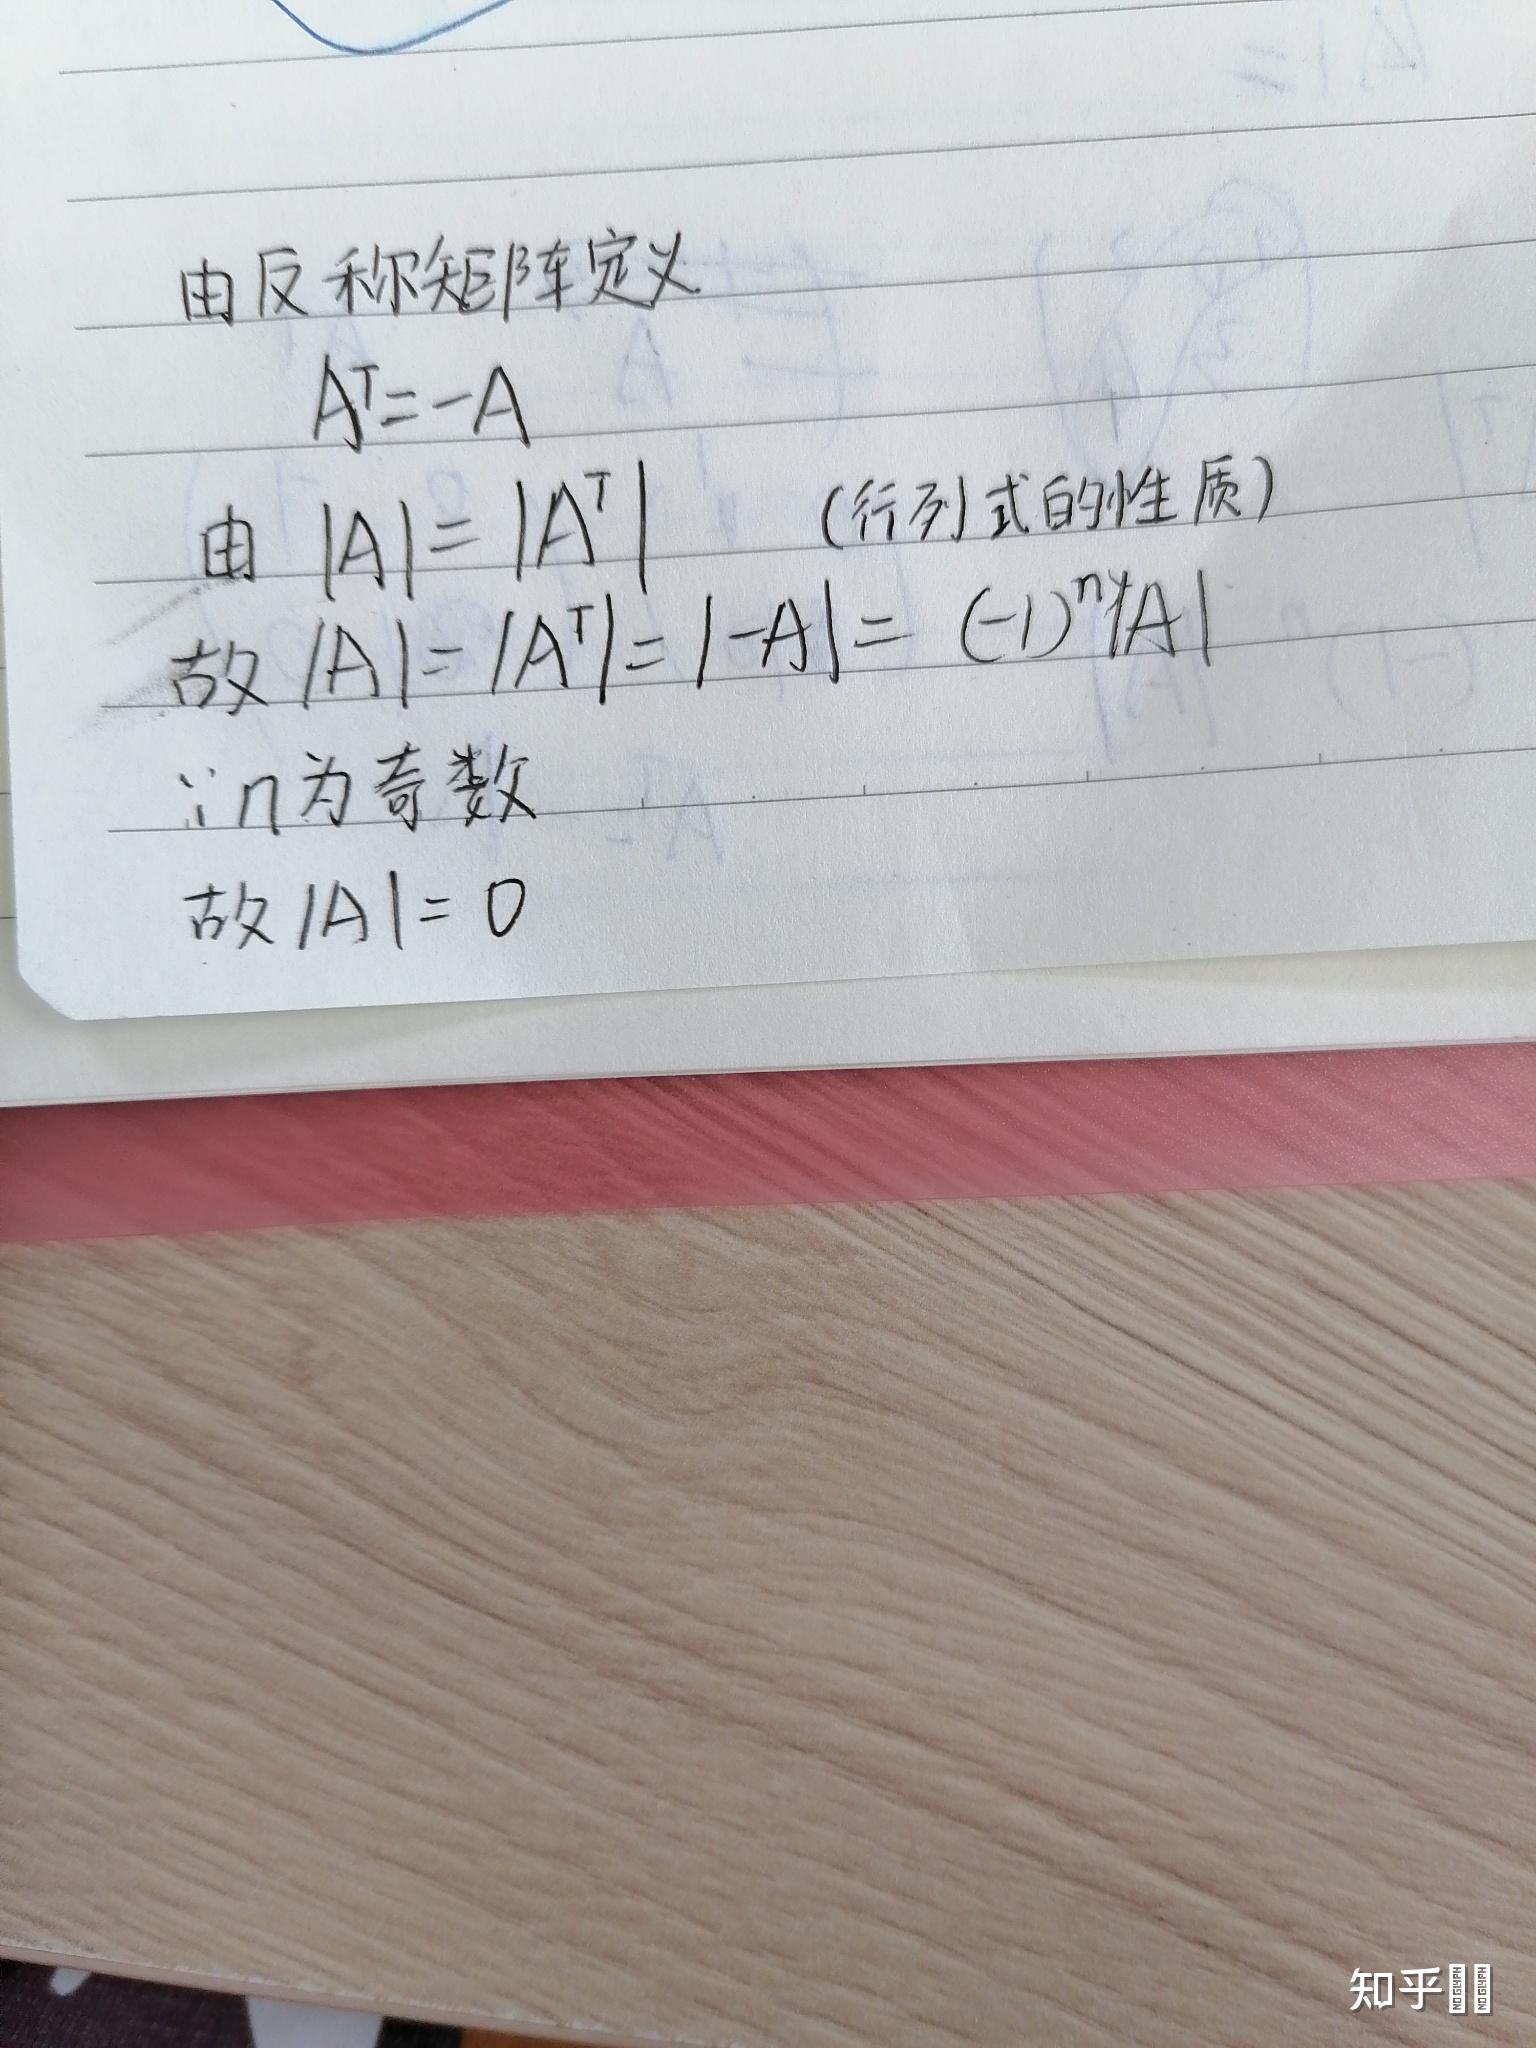 由反称矩阵定义
Aᵀ=-A
由 |A|=|Aᵀ| (行列式的性质)
故|A|=|Aᵀ|=|-A|= (-1)ⁿ|A|
∵n为奇数
故|A|=0
知乎